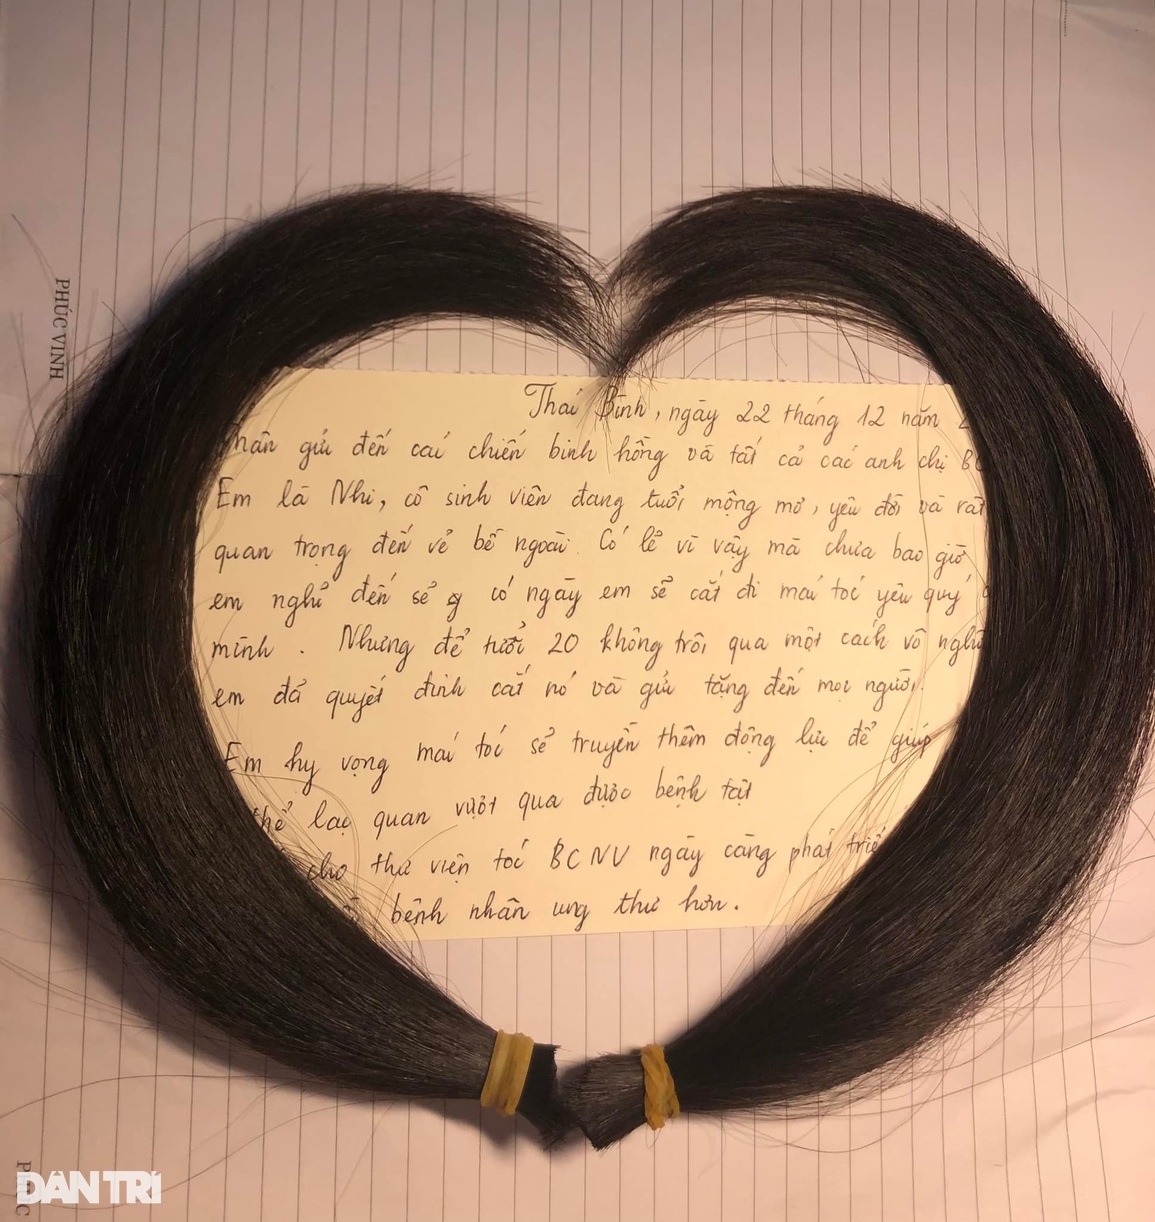 Thái Bình, ngày 22 tháng 12 năm
Thân gửi đến cái chiến binh hồng và tất cả các anh chị
Em là Nhi, cô sinh viên đang tuổi mộng mơ, yêu đời và rất
quan trọng đến vẻ bề ngoài. Có lẽ vì vậy mà chưa bao giờ
em nghĩ đến sẽ có ngày em sẽ cắt đi mái tóc yêu quý
mình. Nhưng để tuổi 20 không trôi qua một cách vô nghĩ
em đã quyết định cắt nó và gửi tặng đến mọi người.
Em hy vọng mái tóc sẽ truyền thêm động lực để giúp
thể lạc quan vượt qua được bệnh tật
cho thư viện tóc BCNV ngày càng phát triể
bệnh nhân ung thư hơn.
PHÚC VINH
PHÚC
DÂN TRÍ